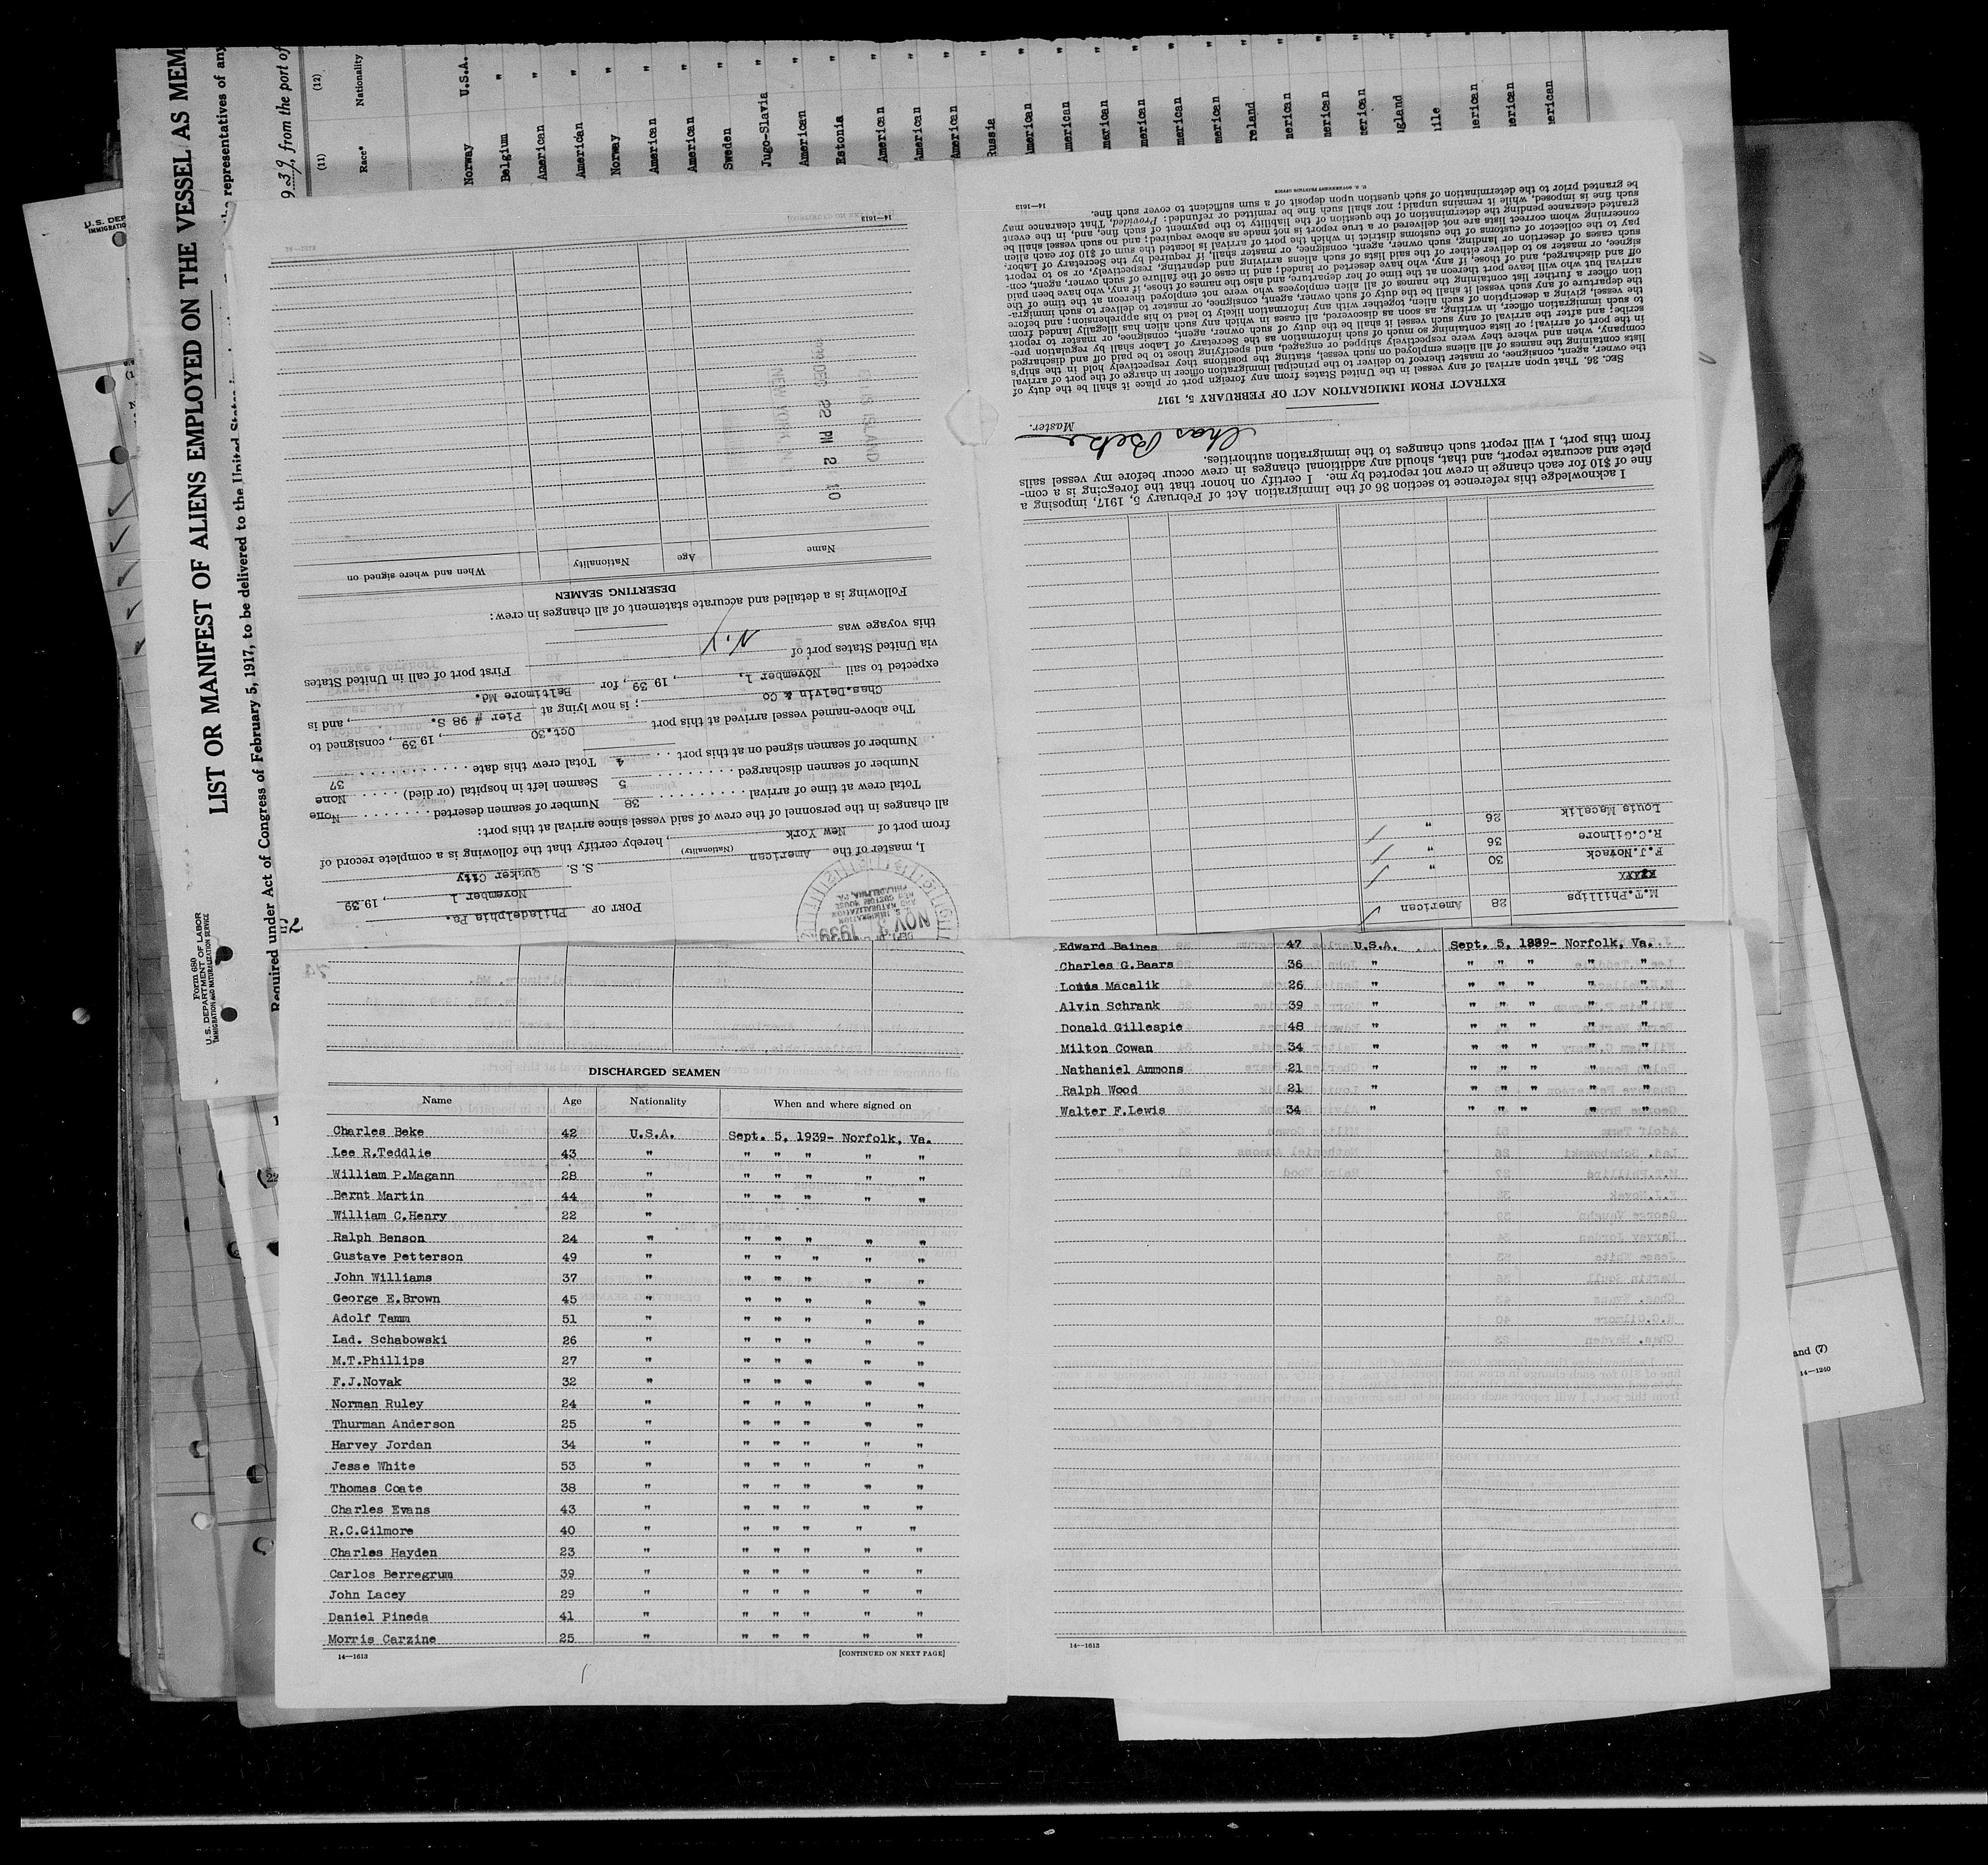 LIST OR MANIFEST OF ALIENS EMPLOYED ON THE VESSEL AS MEM
Required under Act of Congress of February 5, 1917, to be delivered to the United States
the representatives of any
939, from the port of
Form 680
U. S. DEPARTMENT OF LABOR
IMMIGRATION AND NATURALIZATION SERVICE
(11) (12)
Race* Nationality
Norway U.S.A.
Belgium "
American "
American "
Norway "
American "
American "
Sweden "
Jugo-Slavia "
American "
Estonia "
American "
American "
American "
Russia "
American "
merican "
merican "
merican "
merican "
merican "
reland "
merican "
merican "
erican "
gland "
ile "
erican "
erican "
erican
PORT OF Philadelphia Pa.
November 1, 1939
DEPT
NOV 1 1939
IMMIGRATION
AND NATURALIZATION
NEW CUSTOM HOUSE
PHILADELPHIA, PA.
I, master of the American S. S. Quaker City
(Nationality)
from port of New York, hereby certify that the following is a complete record of
all changes in the personnel of the crew of said vessel since arrival at this port:
Total crew at time of arrival 38 Number of seamen deserted None
Number of seamen discharged 5 Seamen left in hospital (or died) None
Number of seamen signed on at this port 4 Total crew this date 37
The above-named vessel arrived at this port Oct.30, 1939, consigned to
Chas.Delvin & Co; is now lying at Pier # 98 S., and is
expected to sail November 1, 1939, for Baltimore Md.
via United States port of First port of call in United States
this voyage was N.Y
Following is a detailed and accurate statement of all changes in crew:
DESERTING SEAMEN
Name Age Nationality When and where signed on
ELLIS ISLAND
DEC 22 PM 2 10
NEW YORK
14—1613 [CONTINUED ON NEXT PAGE]
M.T.Phillips 28 American
F.J.Novack 30 "
R.C.Gilmore 36 "
Louis Macalik 26 "
I acknowledge this reference to section 36 of the Immigration Act of February 5, 1917, imposing a
fine of $10 for each change in crew not reported by me. I certify on honor that the foregoing is a com-
plete and accurate report, and that, should any additional changes in crew occur before my vessel sails
from this port, I will report such changes to the immigration authorities.
Chas Beke
Master.
EXTRACT FROM IMMIGRATION ACT OF FEBRUARY 5, 1917
SEC. 36. That upon arrival of any vessel in the United States from any foreign port or place it shall be the duty of
the owner, agent, consignee, or master thereof to deliver to the principal immigration officer in charge of the port of arrival
lists containing the names of all aliens employed on such vessel, stating the positions they respectively hold in the ship's
company, when and where they were respectively shipped or engaged, and specifying those to be paid off and discharged
in the port of arrival; or lists containing so much of such information as the Secretary of Labor shall by regulation pre-
scribe; and after the arrival of any such vessel it shall be the duty of such owner, agent, consignee, or master to report
to such immigration officer, in writing, as soon as discovered, all cases in which any such alien has illegally landed from
the vessel, giving a description of such alien, together with any information likely to lead to his apprehension; and before
the departure of any such vessel it shall be the duty of such owner, agent, consignee, or master to deliver to such immigra-
tion officer a further list containing the names of all alien employees who were not employed thereon at the time of the
arrival but who will leave port thereon at the time of her departure, and also the names of those, if any, who have been paid
off and discharged, and of those, if any, who have deserted or landed; and in case of the failure of such owner, agent, con-
signee, or master so to deliver either of the said lists of such aliens arriving and departing, respectively, or so to report
such cases of desertion or landing, such owner, agent, consignee, or master shall, if required by the Secretary of Labor,
pay to the collector of customs of the customs district in which the port of arrival is located the sum of $10 for each alien
concerning whom correct lists are not delivered or a true report is not made as above required; and no such vessel shall be
granted clearance pending the determination of the question of the liability to the payment of such fine, and, in the event
such fine is imposed, while it remains unpaid; nor shall such fine be remitted or refunded: Provided, That clearance may
be granted prior to the determination of such question upon deposit of a sum sufficient to cover such fine.
14—1613
U. S. GOVERNMENT PRINTING OFFICE
DISCHARGED SEAMEN
Name Age Nationality When and where signed on
Charles Beke 42 U.S.A. Sept. 5, 1939- Norfolk, Va.
Lee R.Teddlie 43 " " " " " "
William P.Magann 28 " " " " " "
Bernt Martin 44 " " " " " "
William C.Henry 22 "
Ralph Benson 24 " " " " " "
Gustave Petterson 49 " " " " " "
John Williams 37 " " " " " "
George E.Brown 45 " " " " " "
Adolf Tamm 51 " " " " " "
Lad. Schabowski 26 " " " " " "
M.T.Phillips 27 " " " " " "
F.J.Novak 32 " " " " " "
Norman Ruley 24 " " " " " "
Thurman Anderson 25 " " " " " "
Harvey Jordan 34 " " " " " "
Jesse White 53 " " " " " "
Thomas Coate 38 " " " " " "
Charles Evans 43 " " " " " "
R.C.Gilmore 40 " " " " " "
Charles Hayden 23 " " " " " "
Carlos Berregrum 39 " " " " " "
John Lacey 29 " " " " " "
Daniel Pineda 41 " " " " " "
Morris Carzine 25 " " " " " "
14—1613 [CONTINUED ON NEXT PAGE]
Edward Baines 47 U.S.A. Sept. 5, 1939- Norfolk, Va.
Charles G.Baars 36 " " " " " "
Louis Macalik 26 " " " " " "
Alvin Schrank 39 " " " " " "
Donald Gillespie 48 " " " " " "
Milton Cowan 34 " " " " " "
Nathaniel Ammons 21 " " " " " "
Ralph Wood 21 " " " " " "
Walter F.Lewis 34 " " " " " "
14—1613
and (7)
14—1240